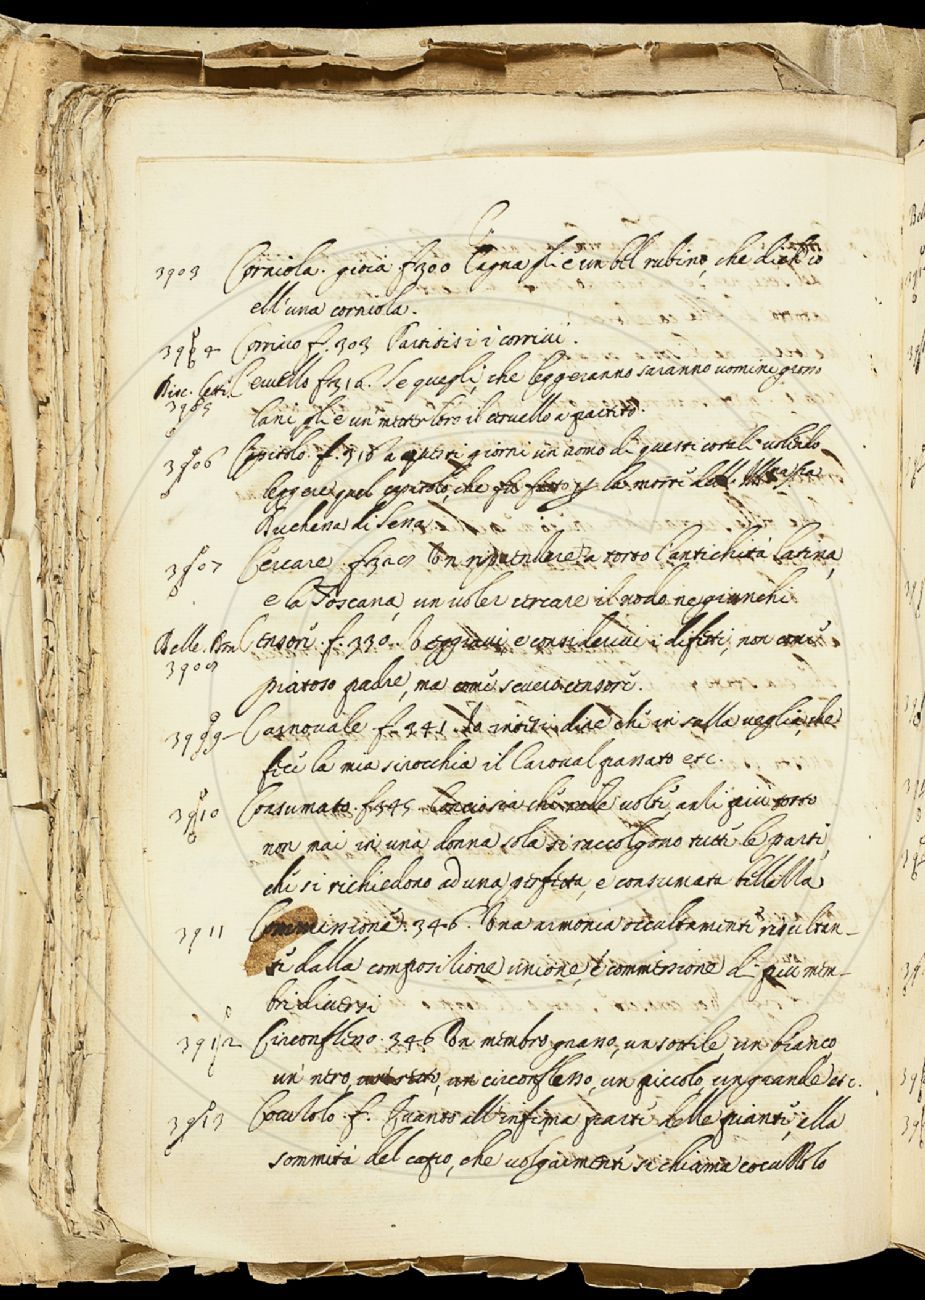 C
3903 Corniola. gioia f. 300 Cagna gli è un bel rubino, che dich'io
ell'una corniola.
3904 Corrivo f. 303 Partitisi i corrivi.
Disc. Lett. Cervello f. 316. Se quegli, che leggeranno saranno uomini grosso
3905 lani gli è un metter loro il cervello a partito.
3906 Capitolo. f. 316 a questi giorni un uomo di questi cotali volendo
leggere quel capitolo, che la morte della
Buchena di Sena
3907 Cercare. f. 320 Un riprendere a torto l'antichità latina,
e la Toscana, un voler cercare il nodo ne giunchi
Belle. Don Censori. f. 330. veggiavi e considerivi i difetti, non come
3908 piatoso padre, ma come severo censore.
3909 Carnovale f. 341. Io intesi dire che in sulla veglia, che
fece la mia sirocchia il Carnoval passato etc.
3910 Consumato. f. 345 Conciosia che rade volte, anzi piu tosto
non mai in una donna sola si raccolgono tutte le parti,
che si richiedono ad una perfetta, e consumata bellezza
3911 Commessione. 346. Una armonia occultamente risultan-
te dalla composizione unione, e commessione di piu mem-
bri diversi
3912 Circonflesso. 346 Un membro grasso, un sottile, un bianco
un nero, un circonflesso, un piccolo, un grande etc.
3913 Cocuzzolo. f. Quanto all'infima parte delle piante, alla
sommità del capo, che volgarmente si chiama cocuzzolo